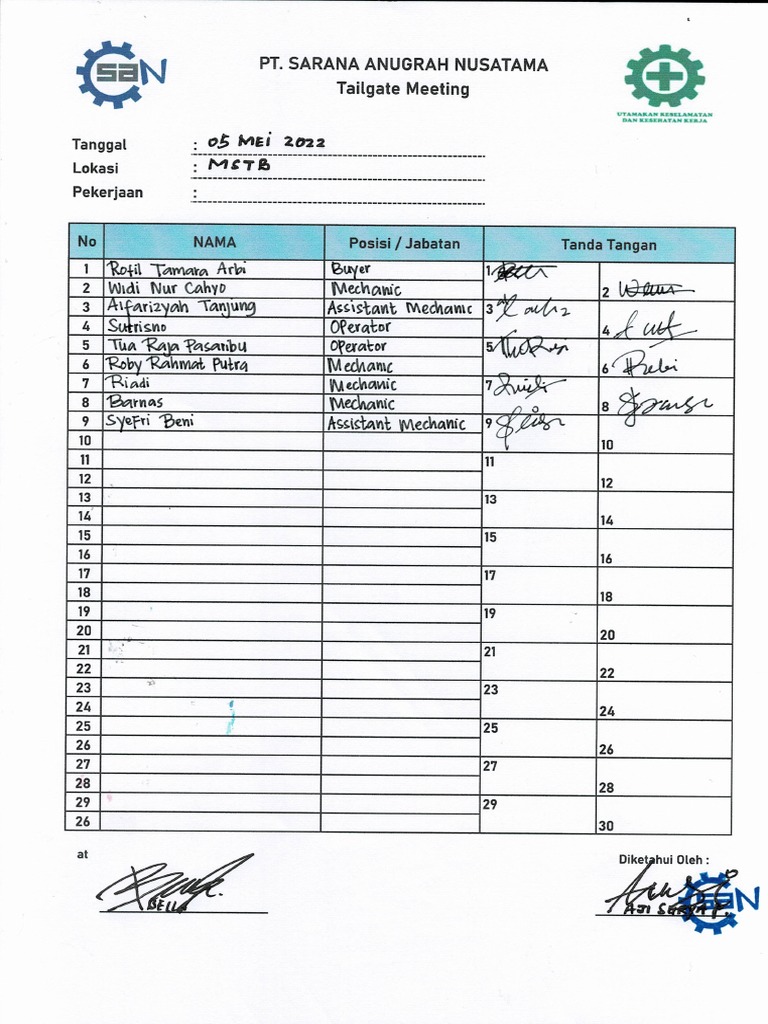 SAN
PT. SARANA ANUGRAH NUSATAMA
Tailgate Meeting
UTAMAKAN KESELAMATAN
DAN KESEHATAN KERJA
Tanggal : 05 MEI 2022
Lokasi : MSTB
Pekerjaan :
No NAMA Posisi / Jabatan Tanda Tangan
1 Rofil Tamara Arbi Buyer 1
2 Widi Nur Cahyo Mechanic 2
3 Alfarizyah Tanjung Assistant Mechanic 3
4 Sutrisno Operator 4
5 Tua Raja Pasaribu Operator 5
6 Roby Rahmat Putra Mechanic 6
7 Riadi Mechanic 7
8 Barnas Mechanic 8
9 Syefri Beni Assistant Mechanic 9
10 10
11 11
12 12
13 13
14 14
15 15
16 16
17 17
18 18
19 19
20 20
21 21
22 22
23 23
24 24
25 25
26 26
27 27
28 28
29 29
26 30
at Diketahui Oleh :
BELLA AJI
SAN